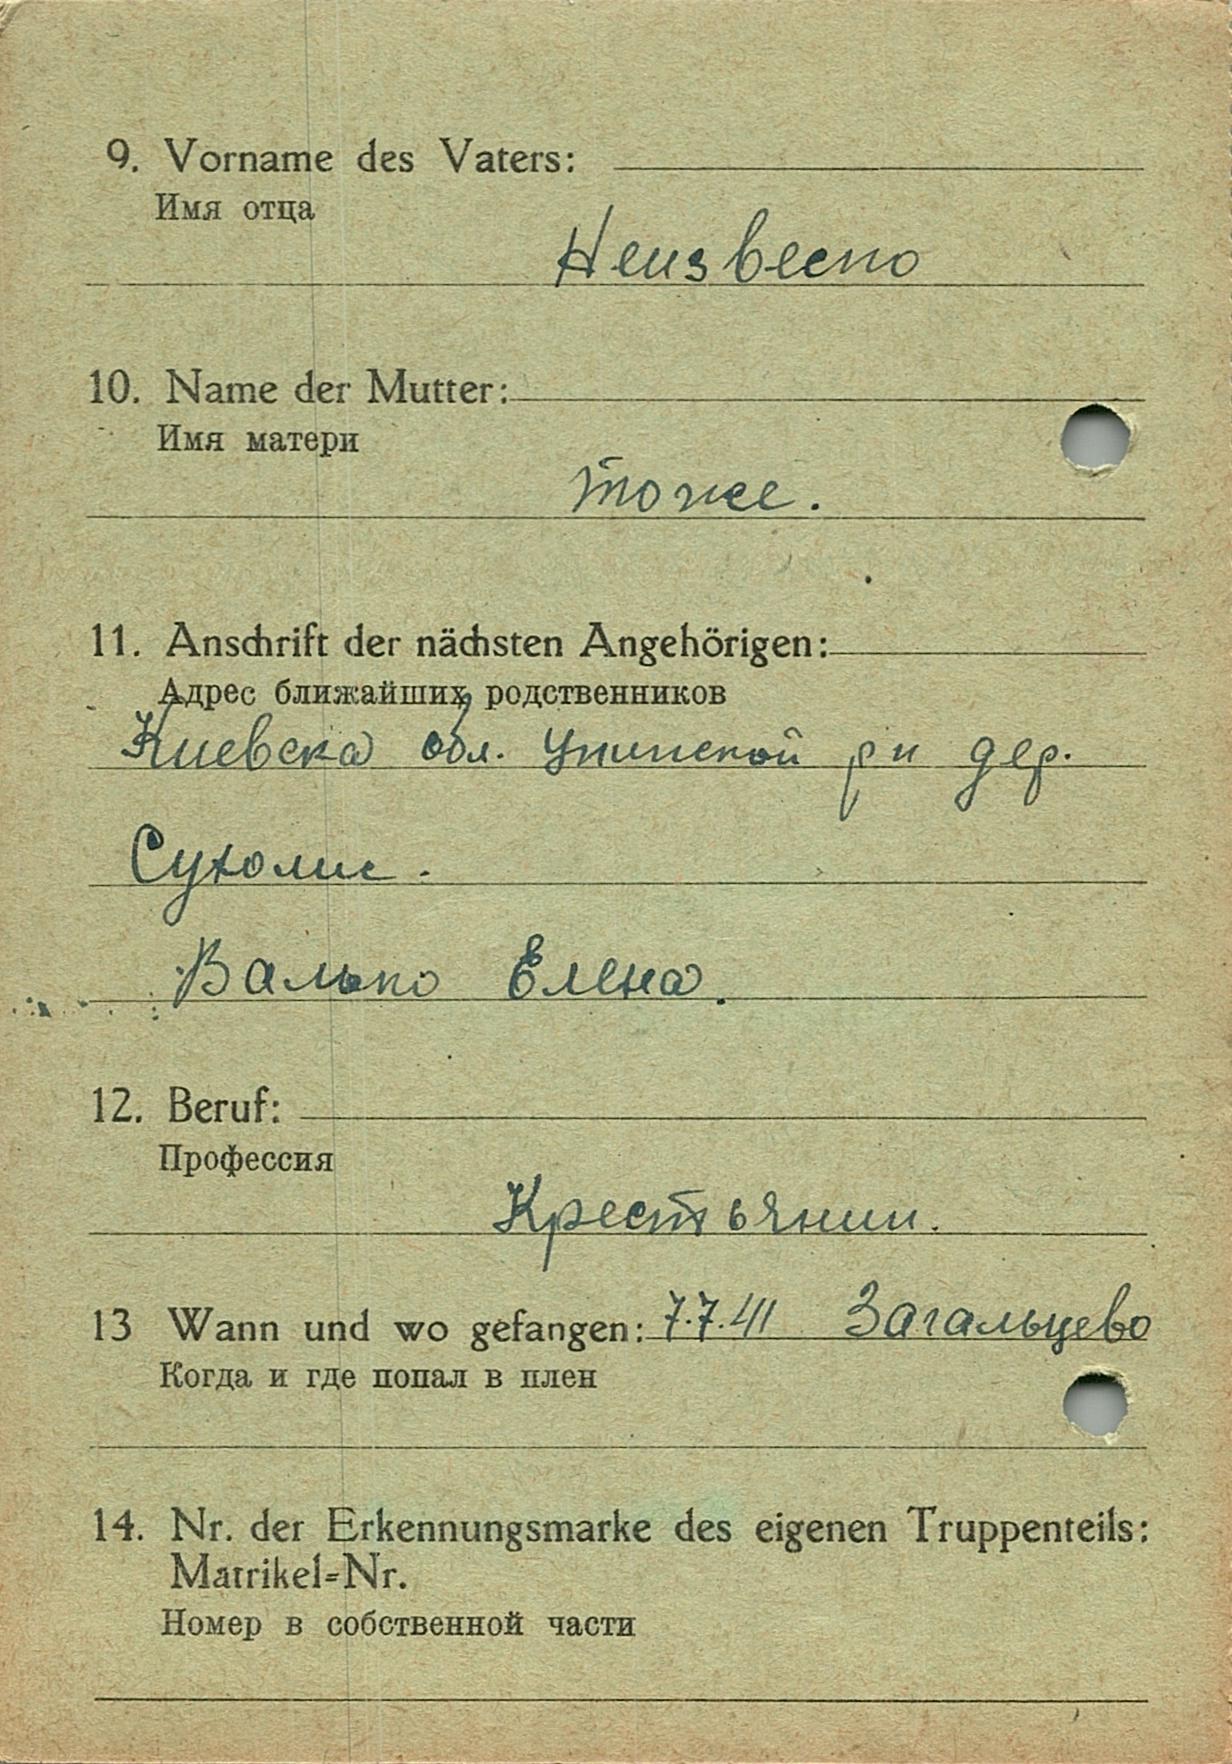 9. Vorname des Vaters:
Имя отца
Неизвесно
10. Name der Mutter:
Имя матери
тоже.
11. Anschrift der nächsten Angehörigen:
Адрес ближайших родственников
Киевска обл. рн дер.
Сухолис.
Валько Елена.
12. Beruf:
Профессия
Крестьянин.
13 Wann und wo gefangen: 7.7.41 Загальцево
Когда и где попал в плен
14. Nr. der Erkennungsmarke des eigenen Truppenteils:
Matrikel-Nr.
Номер в собственной части